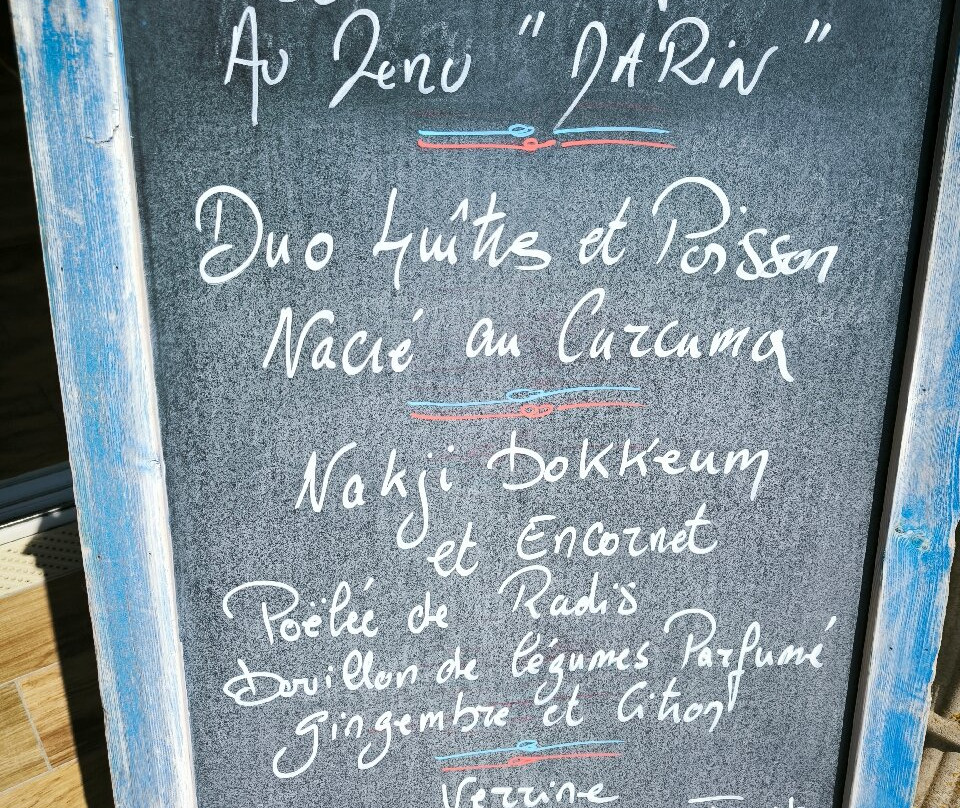 Au Menu "DARiN"
Duo Huîtres et Poisson
Nacré au Curcuma
Nakji Bokkeum
et Encornet
Poëlée de Radis
Bouillon de légumes Parfumé
gingembre et Citron
Verrine